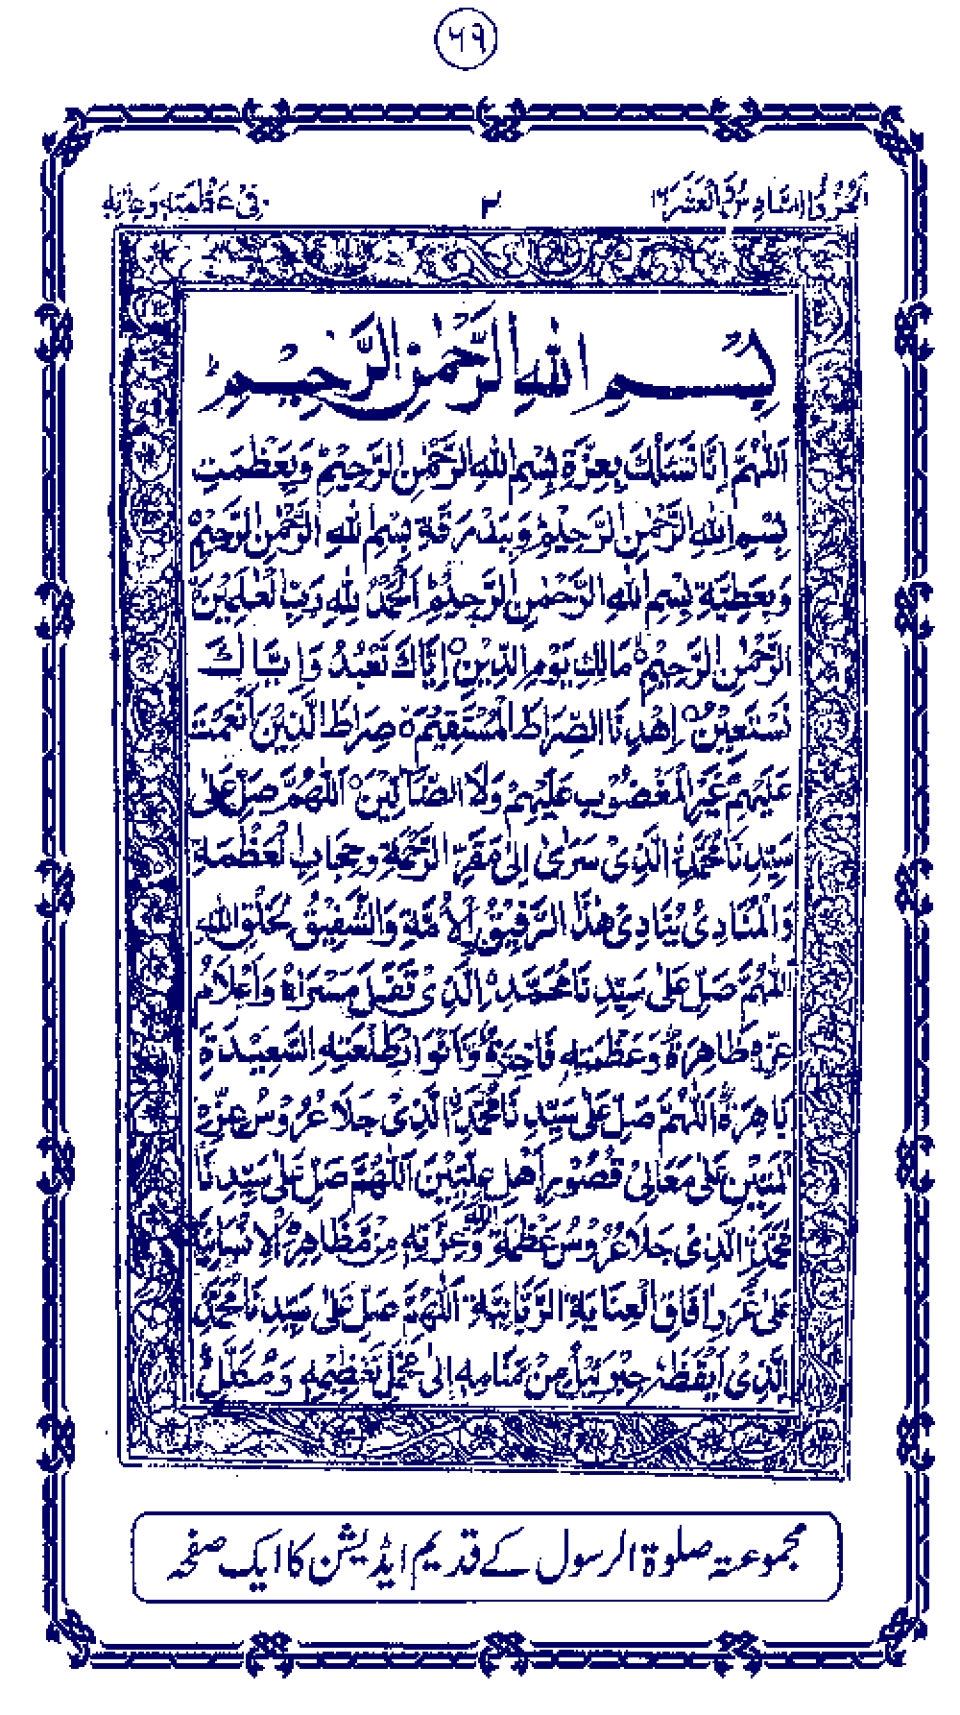 ٦٩
اَلْجُزْءُ السَّادِسُ فِی الْعَشَرَ ١٦
٣
فِیْ عَظْمَتِهٖ وَ
بِسْمِ اللهِ الرَّحْمٰنِ الرَّحِیْمِ ؕ
اَللّٰهُمَّ اِنَّا نَسْئَلُكَ بِعِزَّةِ بِسْمِ اللهِ الرَّحْمٰنِ الرَّحِیْمِ وَبِعَظْمَتِ
بِسْمِ اللهِ الرَّحْمٰنِ الرَّحِیْمِ وَبَذْرَقَةِ بِسْمِ اللهِ الرَّحْمٰنِ الرَّحِیْمِ
وَبِعَطِیَّةِ بِسْمِ اللهِ الرَّحْمٰنِ الرَّحِیْمِ اَلْحَمْدُ لِلهِ رَبِّ الْعٰلَمِیْنَ
الرَّحْمٰنِ الرَّحِیْمِ ۝ مَالِكِ یَوْمِ الدِّیْنِ ۝ اِیَّاكَ نَعْبُدُ وَاِیَّاكَ
نَسْتَعِیْنُ ۝ اِهْدِنَا الصِّرَاطَ الْمُسْتَقِیْمَ ۝ صِرَاطَ الَّذِیْنَ اَنْعَمْتَ
عَلَیْهِمْ غَیْرِ الْمَغْضُوْبِ عَلَیْهِمْ وَلَا الضَّآلِّیْنَ ۝ اَللّٰهُمَّ صَلِّ عَلٰی
سَیِّدِنَا مُحَمَّدِ الَّذِیْ سَرٰی اِلٰی مَقَرِّ الرَّحْمَةِ وَحِجَابِ الْعَظْمَةِ
وَالْمُنَادِیْ یُنَادِیْ هٰذَا الرَّفِیْقُ الْاُمَّةِ وَالشَّفِیْقُ لِخَلْقِ اللهِ
اَللّٰهُمَّ صَلِّ عَلٰی سَیِّدِنَا مُحَمَّدِ الَّذِیْ مَسْرَاهُ وَاَعْلَامُ
عِزِّهٖ ظَاهِرَةٌ وَعَظْمَتِهٖ فَاخِرَةٌ وَاَنْوَارُ طَلْعَتِهِ السَّعِیْدَةِ
بَاهِرَةٌ اَللّٰهُمَّ صَلِّ عَلٰی سَیِّدِنَا مُحَمَّدِ الَّذِیْ جَلَا عُرُوْسُ عِزِّهِ
الْمُبِیْنِ عَلٰی مَعَالِیْ قُصُوْرِ اَهْلِ عِلِّیِّیْنَ اَللّٰهُمَّ صَلِّ عَلٰی سَیِّدِنَا
مُحَمَّدِ الَّذِیْ جَلَا عُرُوْسُ عَظْمَةِ اللهِ وَعِزَّتِهٖ مِنْ مَظَاهِرِ الْاِنْسَانِیَّةِ
عَلٰی غُرَرِ اٰفَاقِ الْعِنَایَةِ الرَّبَّانِیَّةِ اَللّٰهُمَّ صَلِّ عَلٰی سَیِّدِنَا مُحَمَّدِ
الَّذِیْ اَیْقَظَهٗ جِبْرَئِیْلُ مِنْ مَنَامِهٖ اِلٰی مَحَلِّ تَعْظِیْمِهٖ وَمُكَلَّلٌ
مجموعۃ صلوۃ الرسول کے قدیم ایڈیشن کا ایک صفحہ